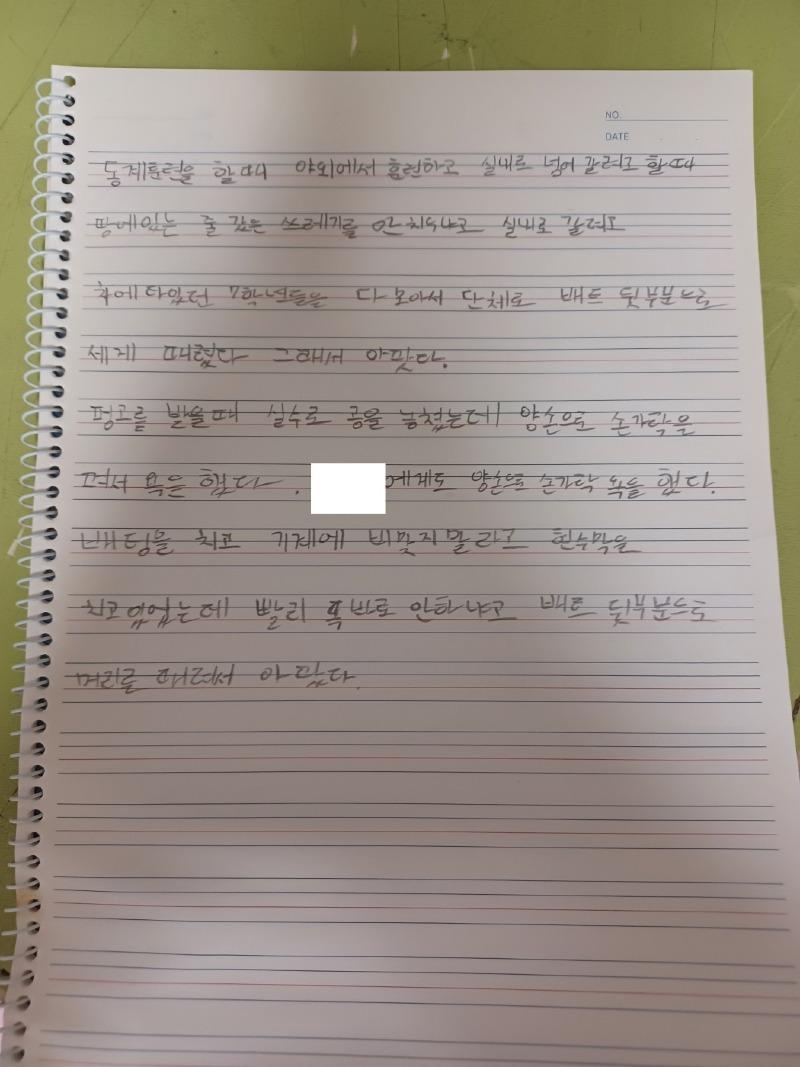 NO.
DATE
동계훈련을 할때 야외에서 훈련하고 실내로 넘어 갈려고 할때
땅에있는 줄 같은 쓰레기를 안치우냐고 실내로 갈려고
차에타있던 7학년들을 다모아서 단체로 배트 뒷부분으로
세게 때렸다 그래서 아팠다.
펑고를 받을때 실수로 공을 놓쳤는데 양손으로 손가락을
펴서 욕을 했다. 에게도 양손으로 손가락 욕을 했다.
배팅을 치고 기계에 비맞지말라고 현수막을
치고있었는데 빨리 똑바로 안하냐고 배트 뒷부분으로
머리를 때려서 아팠다.